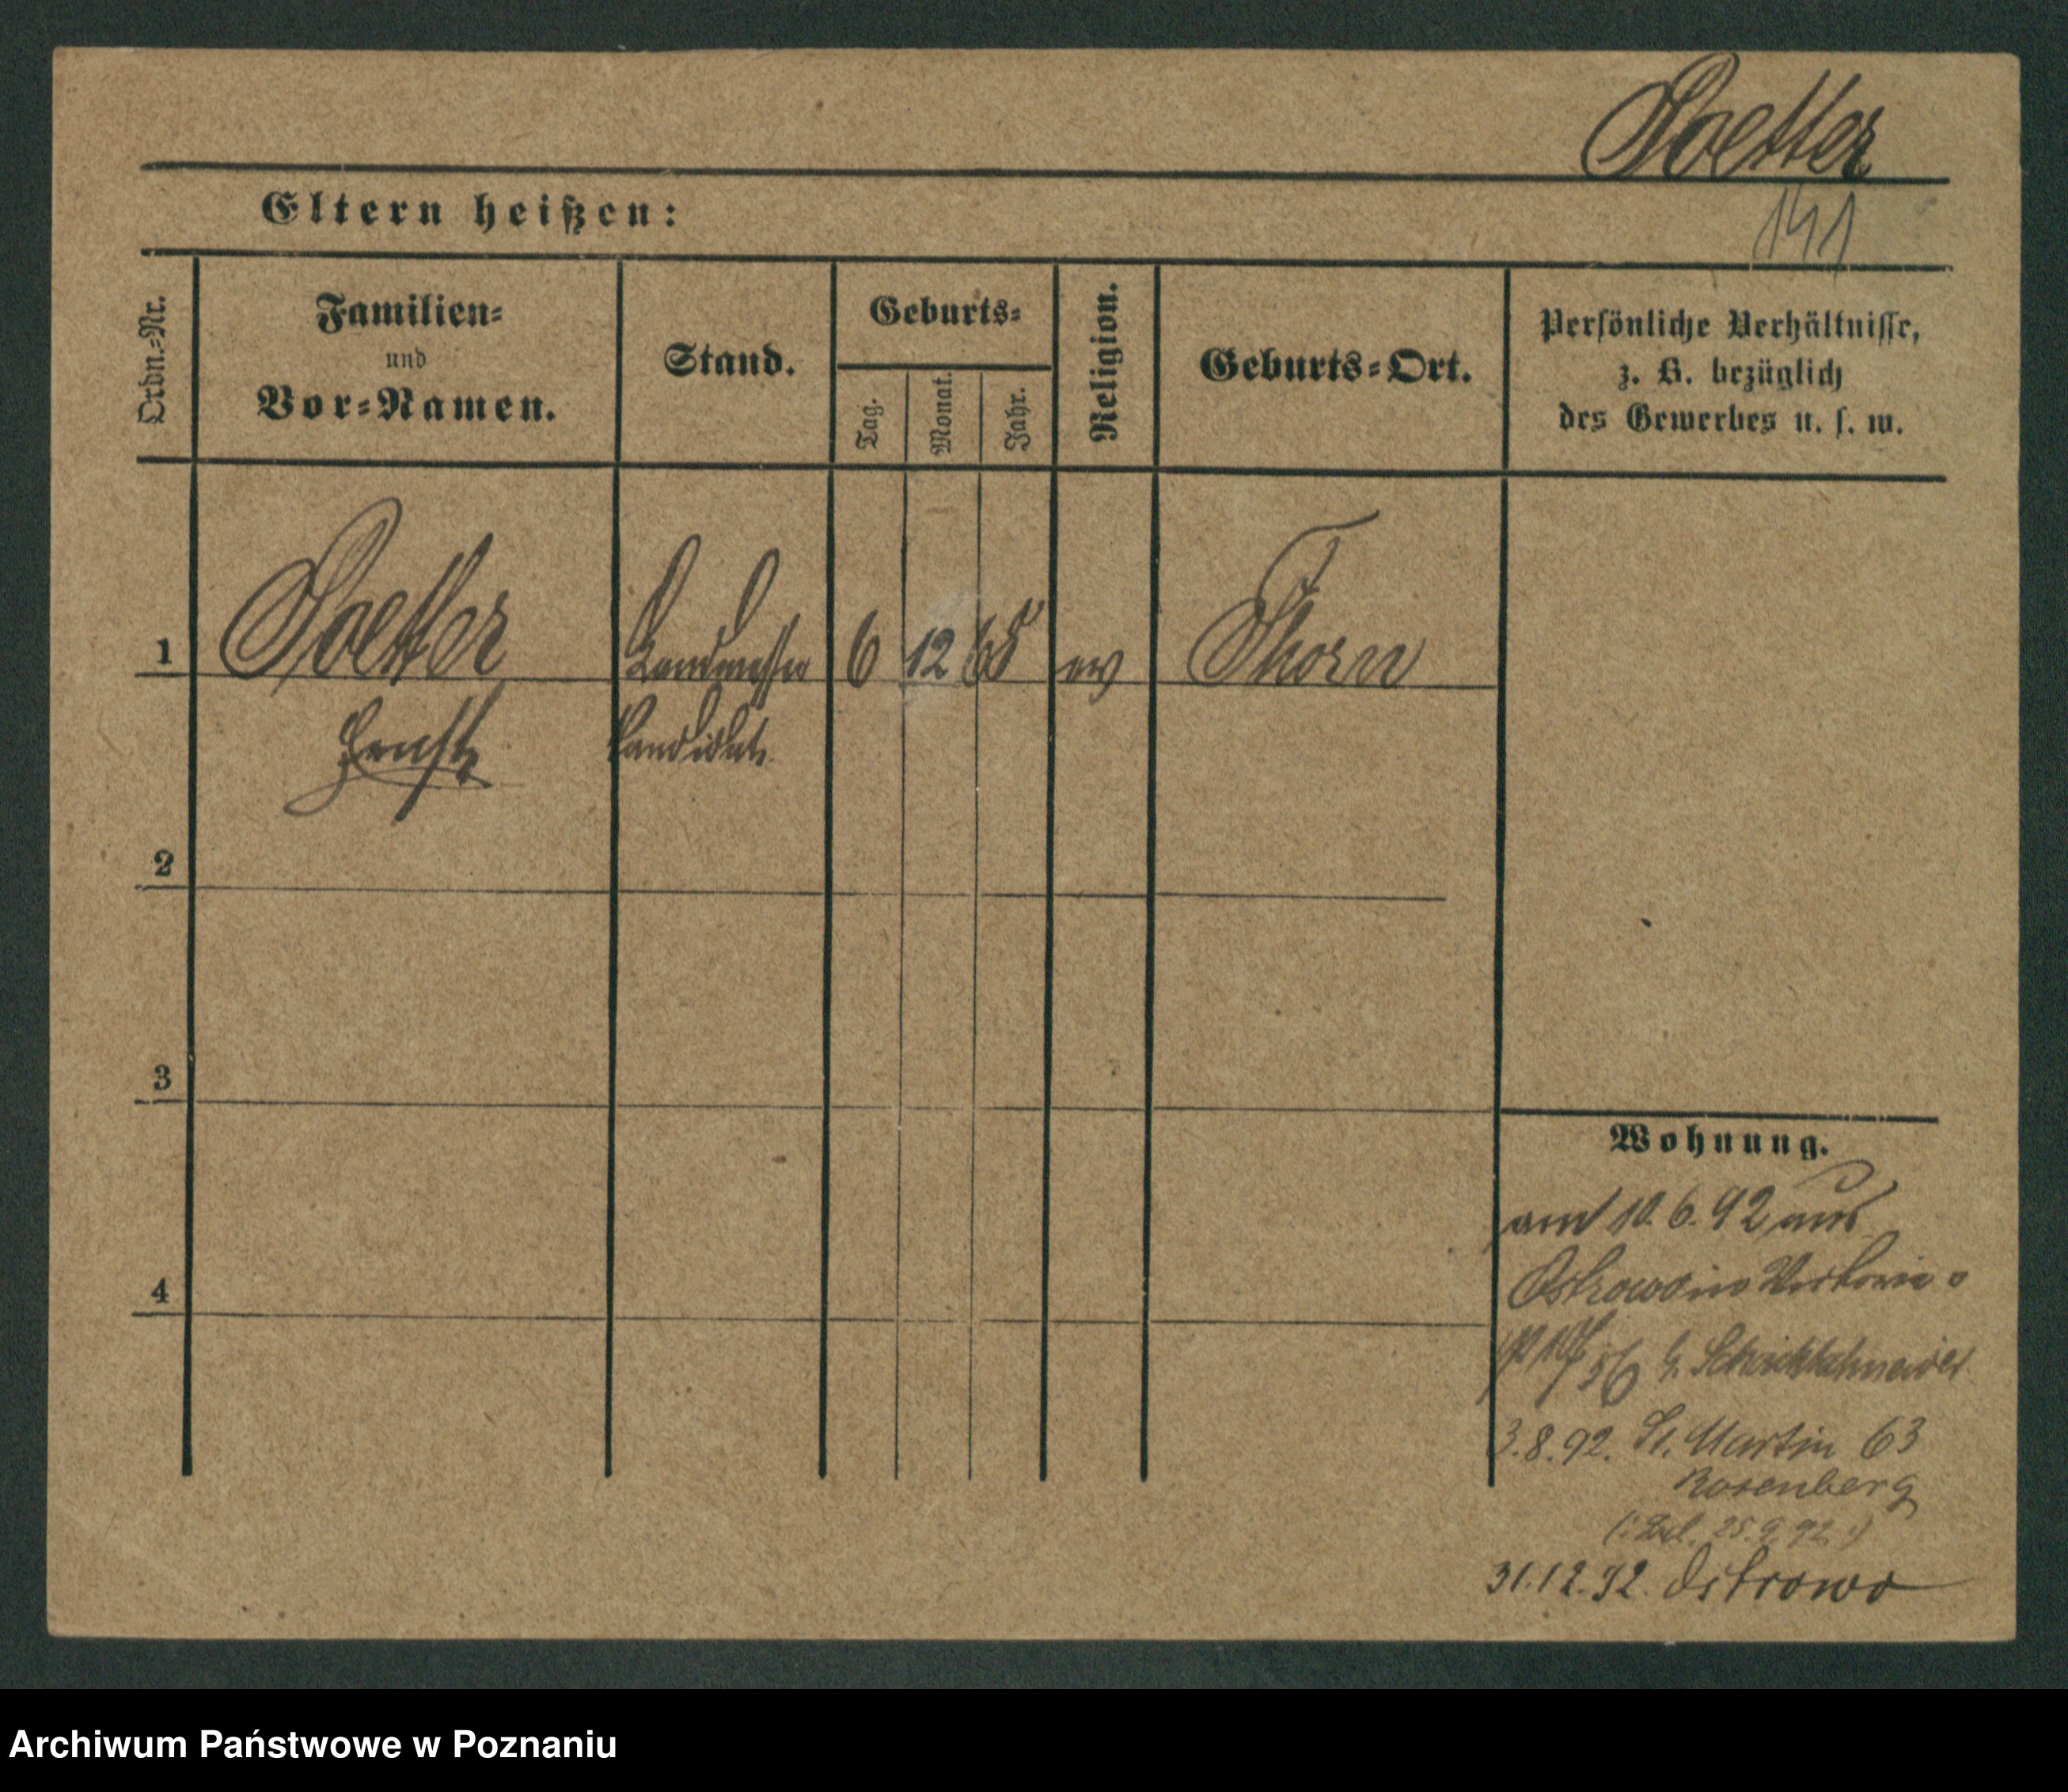 Poetter
141
Eltern heißen:
Ordn.-Nr.
Familien-
und
Vor-Namen.
Stand.
Geburts-
Tag.
Monat.
Jahr.
Religion.
Geburts-Ort.
Persönliche Verhältnisse,
z. B. bezüglich
des Gewerbes u. s. w.
1
Poetter
Landmesser
6
12
65
ev
Thorn
Ernst
Kandidat
2
3
4
Wohnung.
am 10. 6. 92 aus
Ostrowo in
56
3. 8. 92. St. Martin 63
Rosenberg
31.12.92. Ostrowo
Archiwum Państwowe w Poznaniu